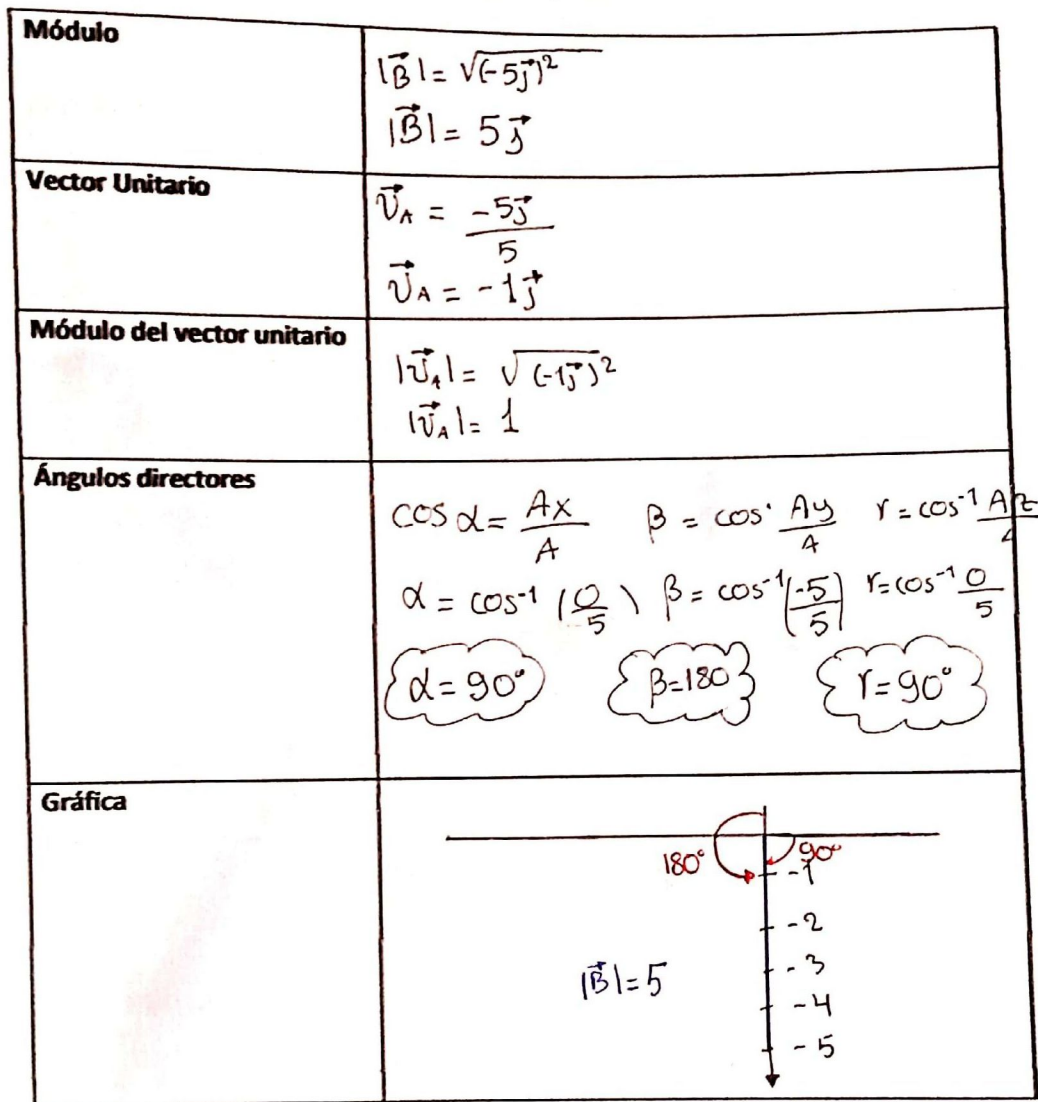 Módulo
|B⃗| = √(-5j⃗)²
|B⃗| = 5j⃗
Vector Unitario
U⃗A = -5j⃗/5
U⃗A = -1j⃗
Módulo del vector unitario
|U⃗A| = √(-1j⃗)²
|U⃗A| = 1
Ángulos directores
cos α = Ax/A β = cos⁻ Ay/A γ = cos⁻¹ Az/A
α = cos⁻¹ (0/5) β = cos⁻¹(-5/5) γ = cos⁻¹ 0/5
α = 90° β = 180 γ = 90°
Gráfica
180° 90°
-1
-2
|B⃗| = 5 -3
-4
-5